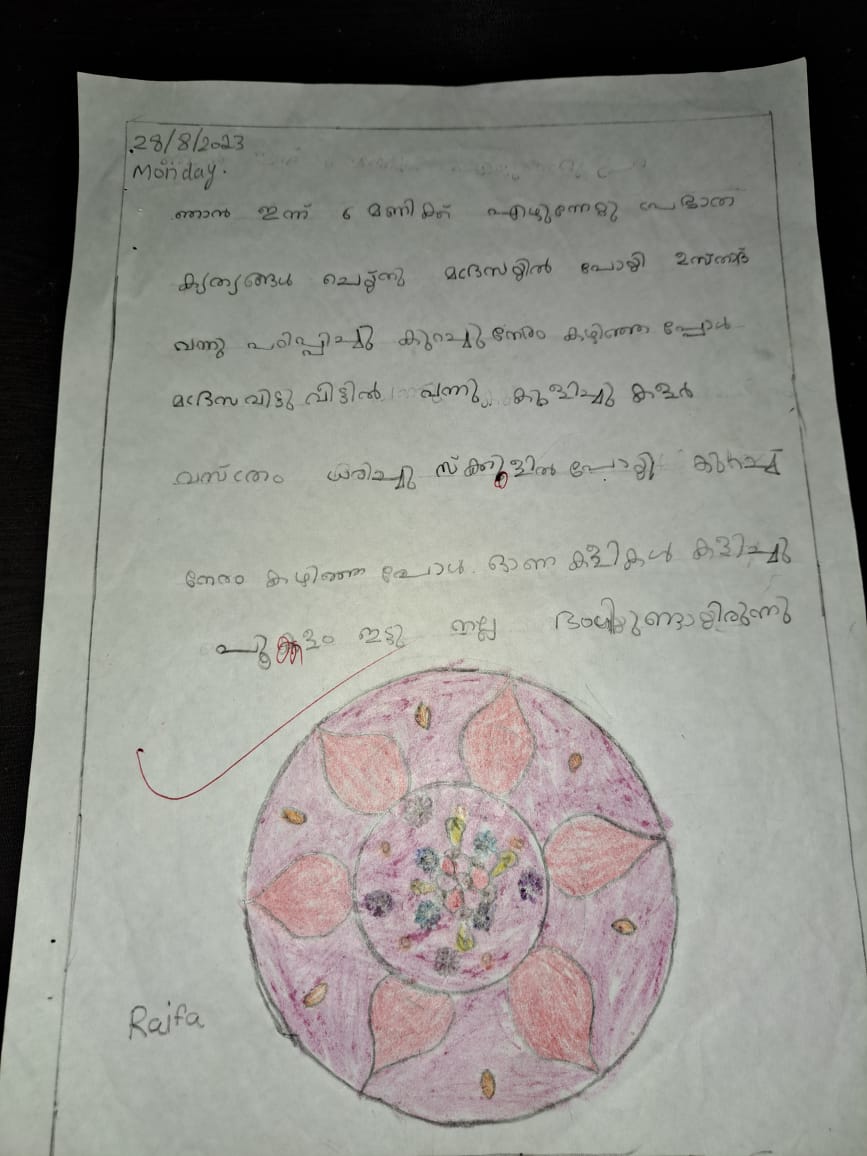 28/8/2023
Monday.
ഞാൻ ഇന്ന് 6 മണിക്ക് എഴുന്നേറ്റു പ്രഭാത
കൃത്യങ്ങൾ ചെയ്തു മദ്രസയിൽ പോയി ഉസ്താദ്
വന്നു പഠിപ്പിച്ചു കുറച്ചു നേരം കഴിഞ്ഞ പ്പോൾ
മദ്രസ വിട്ടു വീട്ടിൽ വന്നു കുളിച്ചു കളർ
വസ്ത്രം ധരിച്ചു സ്ക്കൂളിൽ പോയി കുറച്ച്
നേരം കഴിഞ്ഞ പ്പോൾ. ഓണ കളികൾ കളിച്ചു
പൂക്കളം ഇട്ടു നല്ല ഭംഗിയുണ്ടായിരുന്നു
Raifa